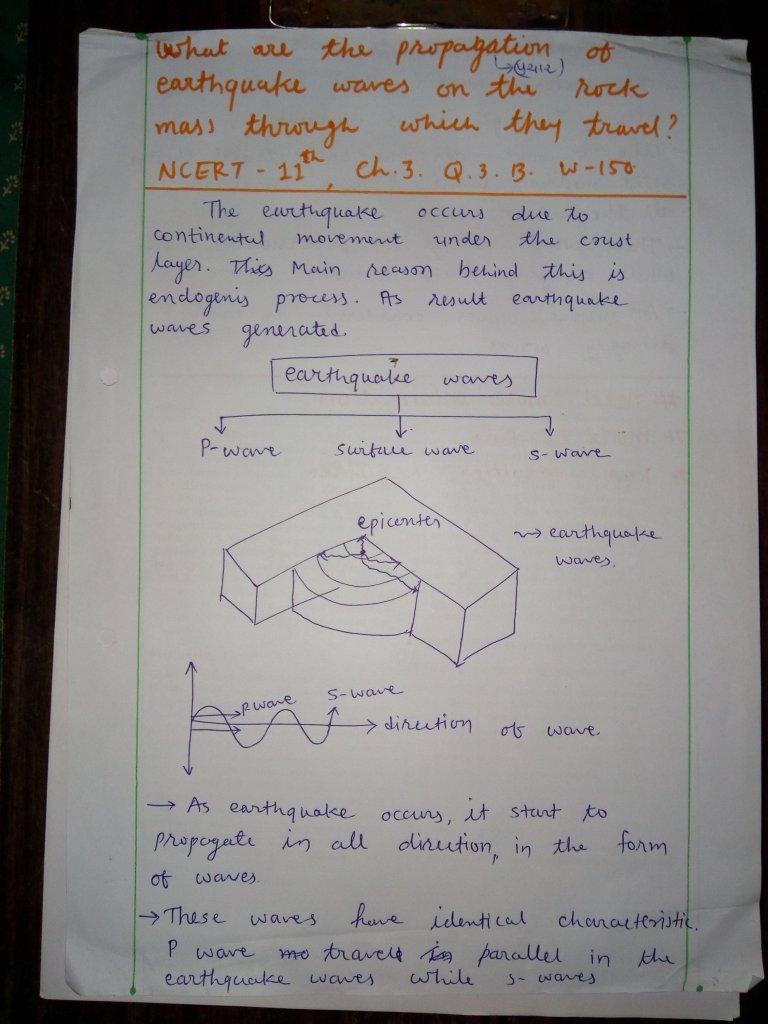 What are the propagation of
earthquake waves on the rock
mass through which they travel?
NCERT - 11th, Ch.3. Q.3.B. W-150
The eurthquake occurs due to
continental movement under the crust
layer. This Main reason behind this is
endogenis process. As result earthquake
waves generated.
earthquake waves
P-wave surface wave s-wave
epicenter
earthquake
waves.
P wave S-wave
direction of wave
→ As earthquake occurs, it start to
propogate in all direction, in the form
of waves.
→ These waves have identical characteristic.
P wave travels parallel in the
earthquake waves while s-waves